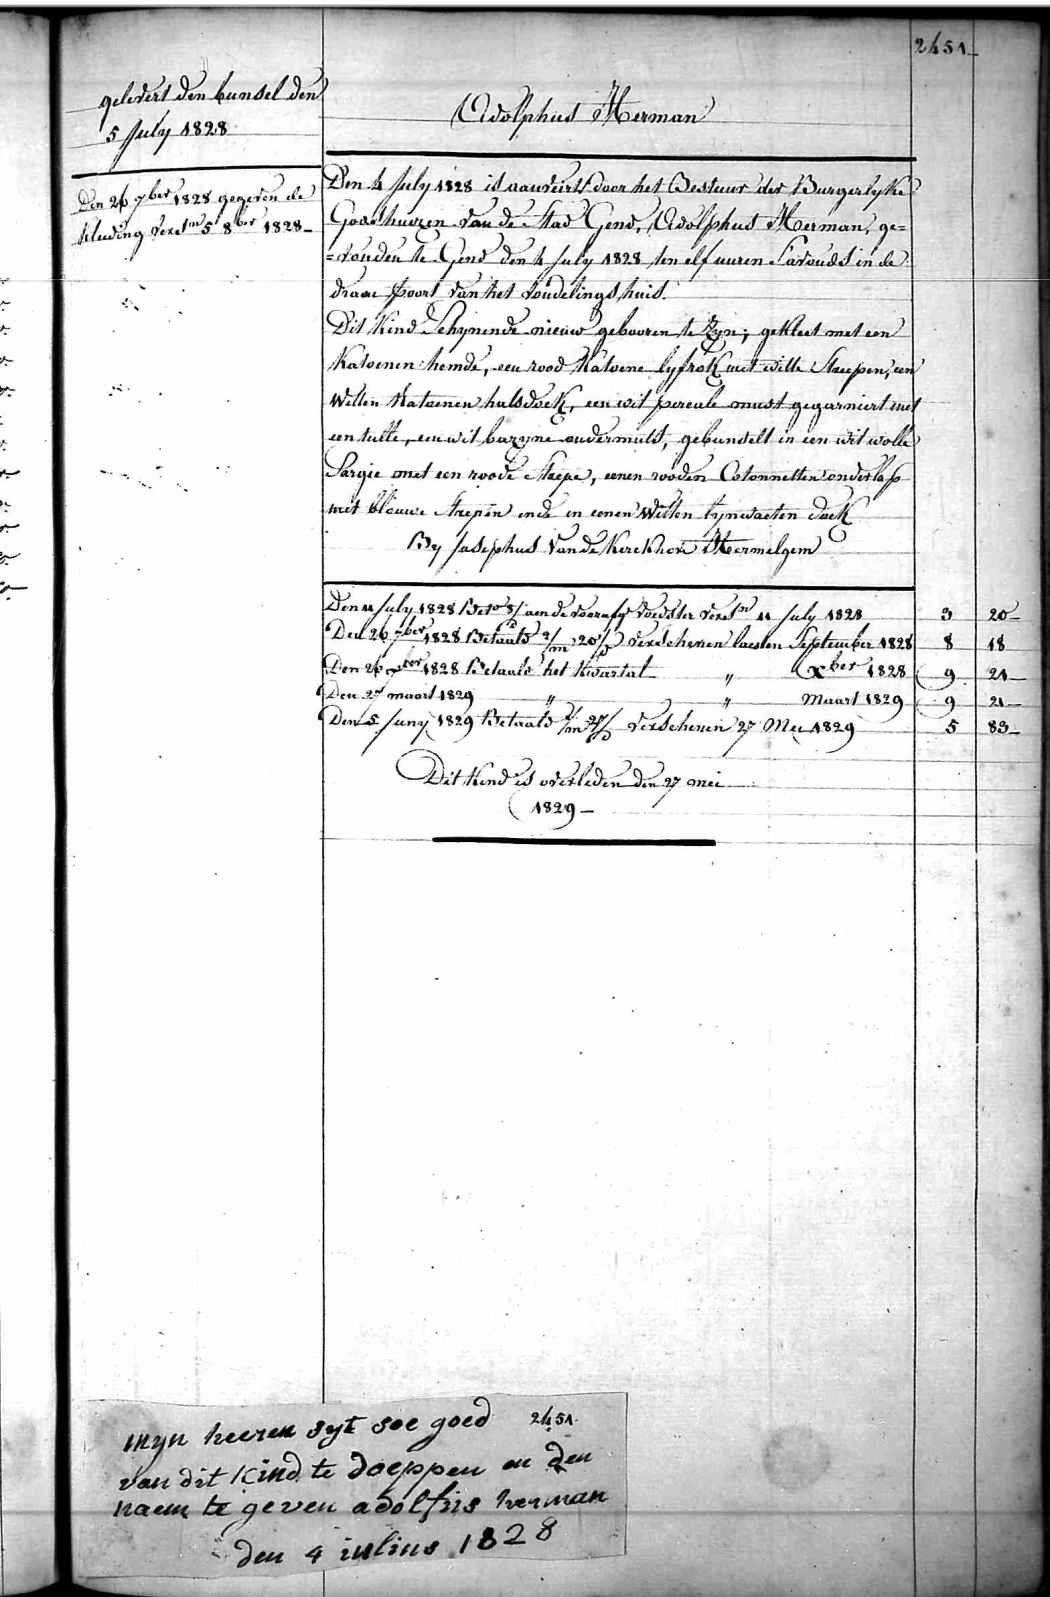 2451
gelevert den bunsel den
5 July 1828
Den 26 7ber 1828 gegeven de
kleeding versn 5 8ber 1828
Adolphus Herman
Den 4 July 1828 is aanveirt door het Bestuur der Burgerlyke
Godshuizen van de Stad Gend, Adolphus Herman, ge=
=vonden te Gend den 4 July 1828 ten elf uuren s'avonds in de
draae poort van het vondelingshuis.
Dit Kind Schynende nieuw gebooren te Zyn; gekleet met een
Katoenen hemde, een rood Katoene lyfrok met witte Streepen, een
witten Katoenen halsdoek, een wit percale muts gegarniert met
een tulle, een wit bazyne ondermuts, gebunselt in een wit wolle
Sargie met een roode Strepe, eenen rooden Cotonnetten onderlap
met blauwe Strepen ende in eenen witten lynwaeten doek
By Josephus Van de Kerckhove Hermelgem
Den 11 July 1828 aen de voorafg voedster versn 11 July 1828 3 20
Den 26 7ber 1828 Betaald 2/m 20/D verschenen laesten September 1828 8 18
Den 26 xber 1828 Betaald het Kwartal " Xber 1828 9 21
Den 27 maart 1829 " " Maart 1829 9 21
Den 5 Juny 1829 Betaald 1/m 27/D verschenen 27 Mei 1829 5 83
Dit Kind is overleden den 27 mei
1829
myn heeren syt soe goed 2451
van dit Kind te doeppen en den
naem te geven adolfus herman
den 4 iulius 1828